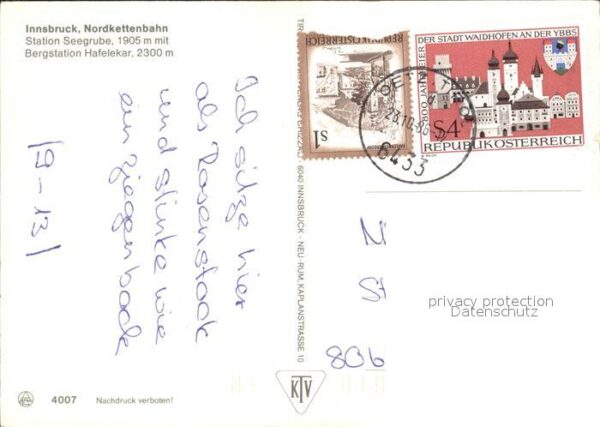 Innsbruck, Nordkettenbahn
Station Seegrube, 1905 m mit
Bergstation Hafelekar, 2300 m
Ich sitze hier
als Rosenstock
und stinke wie
ein Ziegenbock
(9-13)
4007 Nachdruck verboten!
6040 INNSBRUCK - NEU-RUM, KAPLANSTRASSE 10
KTV
REPUBLIK ÖSTERREICH
S1
800 JAHRFEIER DER STADT WAIDHOFEN AN DER YBBS
S4
REPUBLIK ÖSTERREICH
OETZ
6433
806
privacy protection
Datenschutz